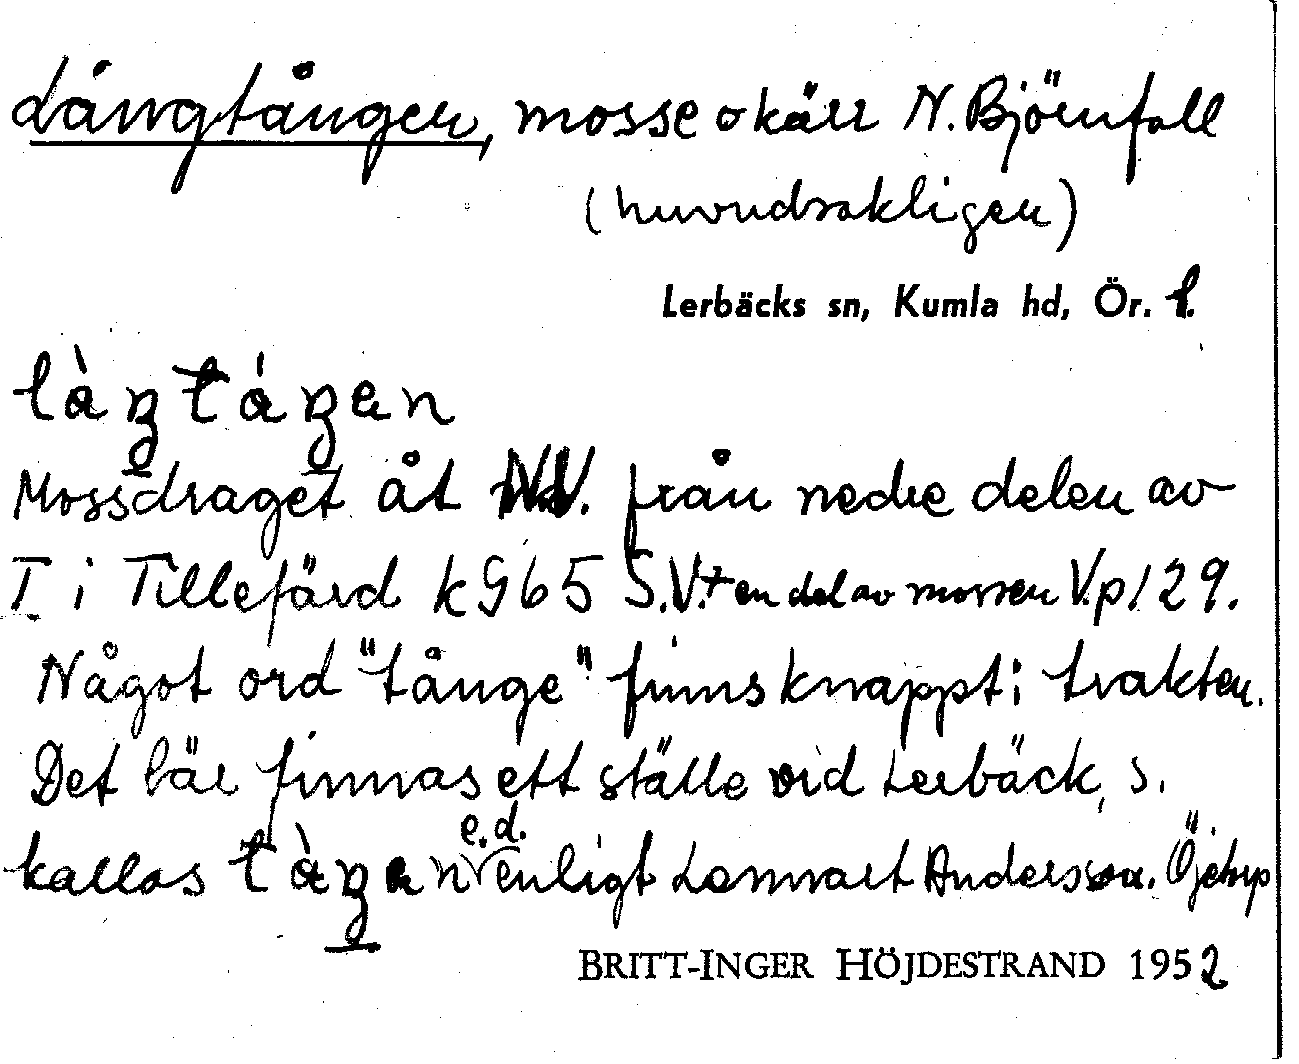 Långtången, mosse o kärr N. Björnfall
(huvudsakligen)
Lerbäcks sn, Kumla hd, Ör. l.
Mossdraget åt NV. från nedre delen av
T i Tillefärd k 965 S.V. + en del av mossen V.p 129.
Något ord "tånge" finns knappt i trakten.
Det lär finnas ett ställe vid Lerbäck, s.
kallas e.d. enligt Lennart Andersson. Öjetorp
BRITT-INGER HÖJDESTRAND 1952